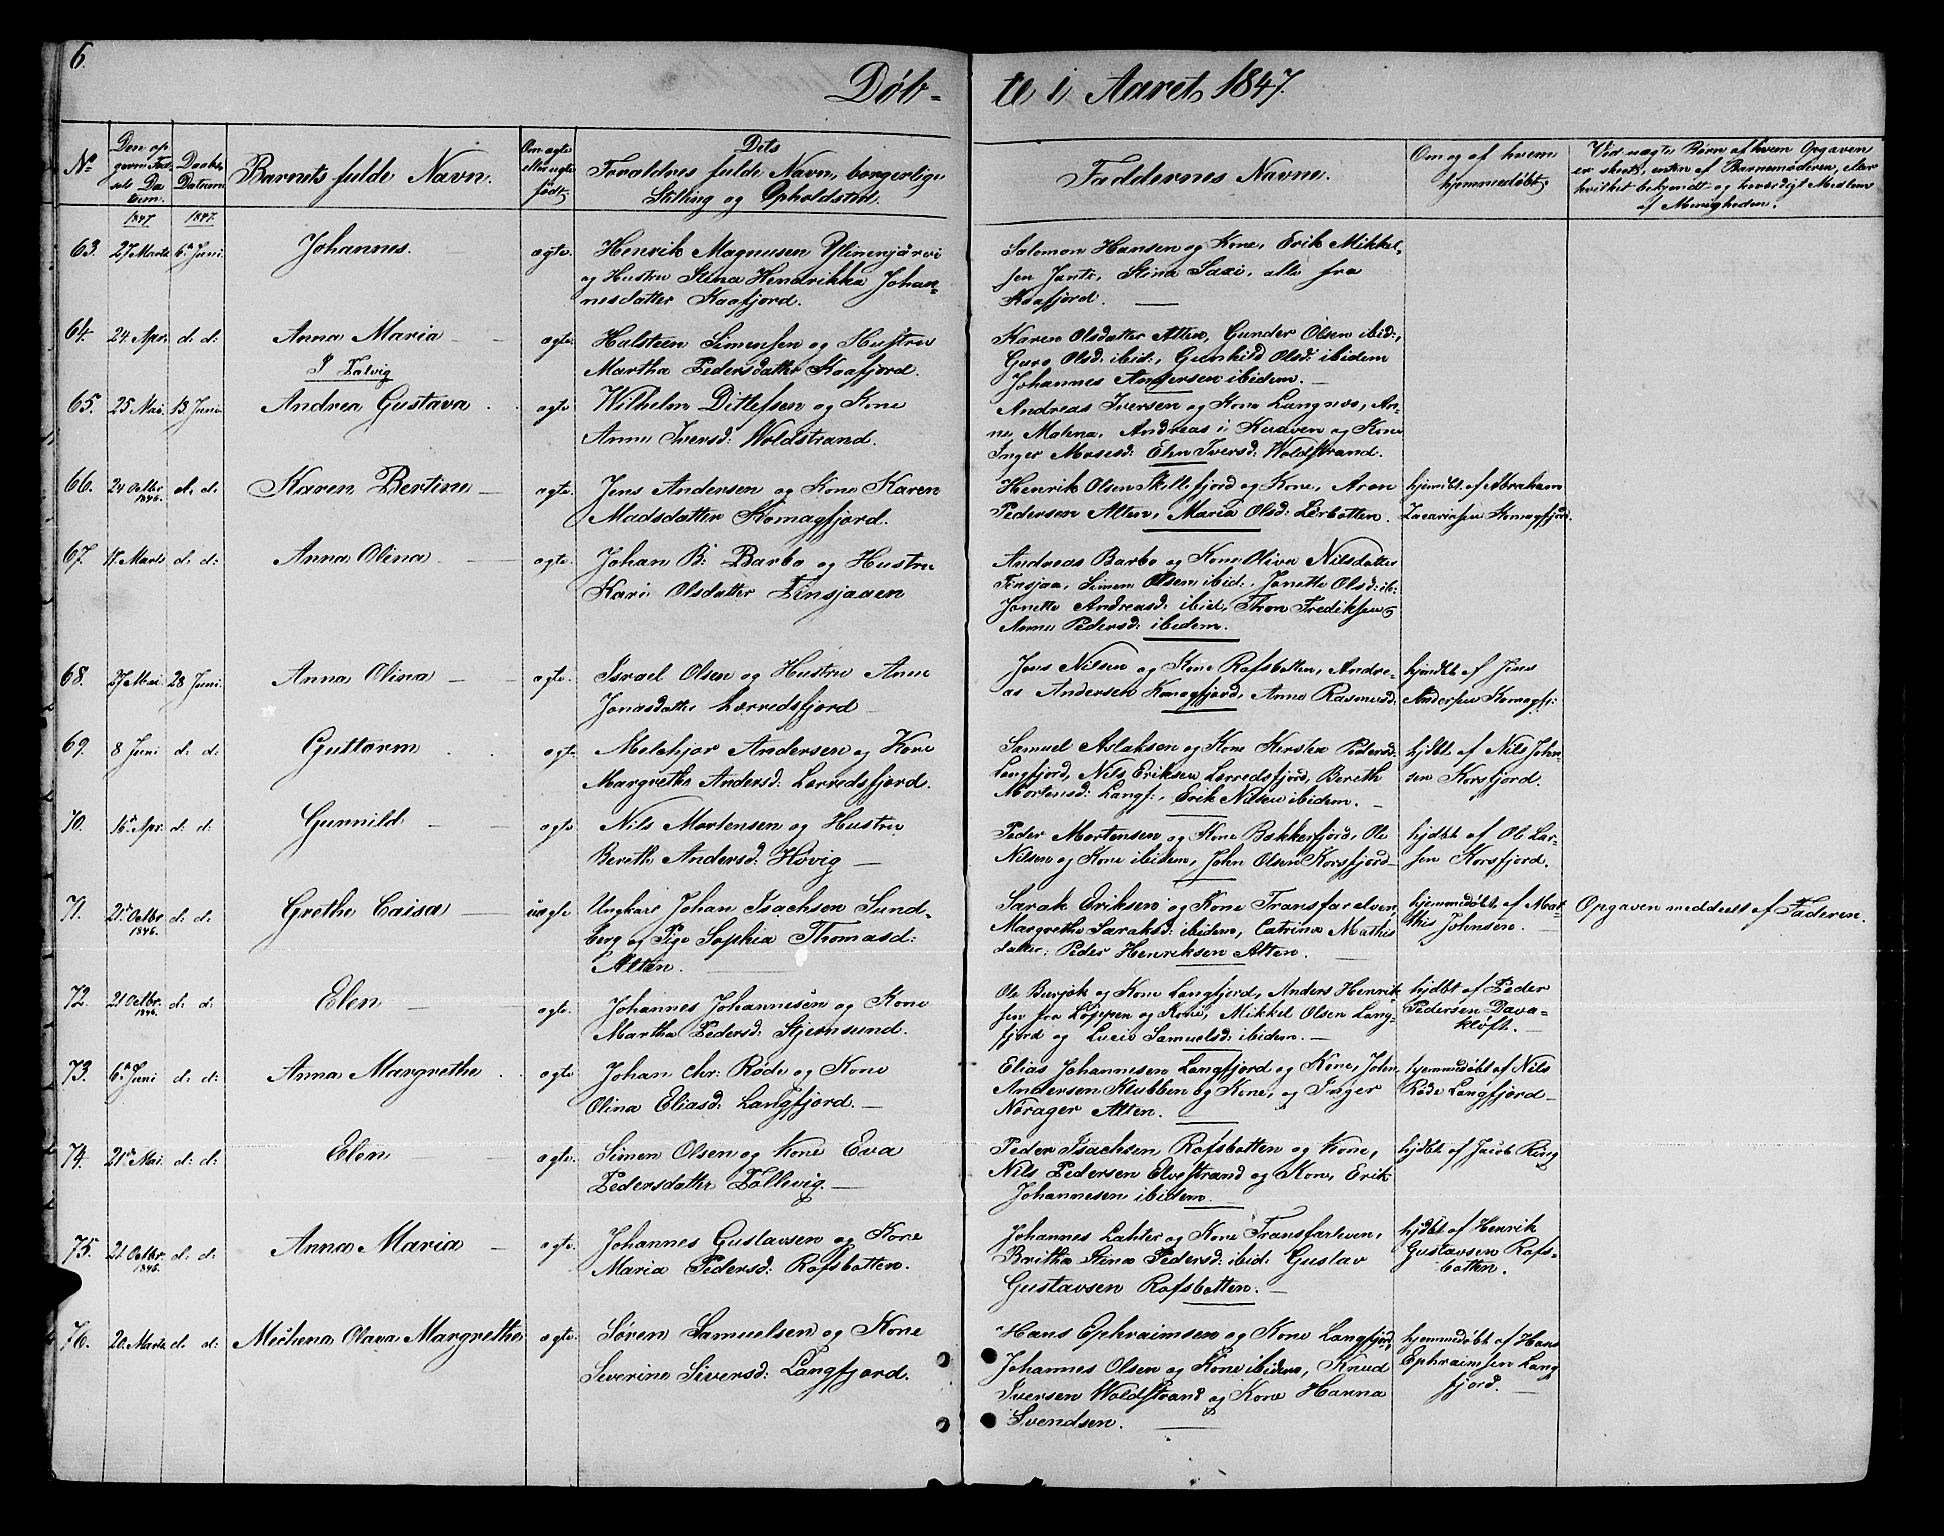 6.
Døb- te i Aaret 1847.
No
Den op
givne Fød-
sels Da
tum.
Daabs
Datum
Barnets fulde Navn.
Om ægte
eller uægte
født.
Dets
Forældres fulde Navn, borgerlige
Stilling og Opholdsted.
Faddernes Navne.
Om og af hvem
hjemmedøbt.
Ved uægte Børn af hvem Opgaven
er skeet, enten af Barnemoderen, eller
hvilket bekjendt og troværdigt Medlem
af Menigheden.
1847 1847.
63. 27 Marts 6te Juni. Johannes. ægte.
Henrik Magnusen Ylinenjärvi
og Hustru Stina Hendrikka Johan-
nesdatter Kaafjord.
Salomon Hansen og Kone, Erik Mikkel-
sen Jante, Stina Saxi, alle fra
Kaafjord.
64. 24 Apr. d: d: Anna Maria ægte.
I Talvig
Halsteen Simensen og Hustru
Martha Pedersdatter Kaafjord.
Karen Olsdatter Alten, Gunder Olsen ibid:,
Guro Olsd: ibid:, Gunhild Olsd: ibidem
Johannes Andersen ibidem.
65. 25 Mai. 13 Juni Andrea Gustava. ægte.
Wilhelm Ditlefsen og Kone
Anne Iversd: Woldstrand.
Andreas Iversen og Kone Langnes, An-
ne Malena, Andreas i Kraven og Kone
Inger Mosesd: Elen Iversd: Woldstrand.
66. 24 Octbr. 1846. d: d: Karen Bertine ægte.
Jens Andersen og Kone Karen
Madsdatter Komagfjord.
Henrik Olsen Skillefjord og Kone, Aron
Pedersen Alten, Maria Olsd: Lerbotten.
hjemdbt af Abraham
Zacariasen Komagfjord.
67. 11 Marts d: d: Anna Olina ægte.
Johan B: Barbo og Hustru
Kari Olsdatter Tinsjaaen
Andreas Barbo og Kone Oliva Nilsdatter
Tinsjaa, Simen Olsen ibid:, Janette Olsd: ib:
Janette Andreasd: ibid, Thron Fredriksen og
Anne Pedersd: ibidem.
68. 27 Mai. 28 Juni. Anna Olina ægte.
Israel Olsen og Hustru Anne
Jonasdatter Lærredsfjord
Jens Nilsen og Kone Rafsbotten, Andre-
as Andersen Komagfjord, Anne Rasmusd:
hjmdbt af Jens
Andersen Komagfj:
69. 8 Juni d: d: Guttorm ægte.
Melchjor Andersen og Kone
Margrethe Andersd: Lærredsfjord.
Samuel Aslaksen og Kone Kirsten Pedersd:
Langfjord, Nils Eriksen Lærredsfjord, Bereth
Mortensd: Langf:, Erik Nilsen ibidem.
hjdbt af Nils John-
sen Korsfjord
70. 16de Apr. d: d: Gunnild ægte.
Nils Mortensen og Hustru
Bereth Andersd: Høvig
Peder Mortensen og Kone Bakkerfjord, Ole
Nilsen og Kone ibidem, John Olsen Korsfjord
hjdbt af Ole Lar-
sen Korsfjord.
71. 21de Octbr. 1846. d: d: Grethe Caisa uægte
Ungkarl Johan Isachsen Sund-
berg og Pige Sophia Thomasd:
Alten.
Sarak Eriksen og Kone Transfarelven,
Margrethe Saraksd: ibidem, Catrina Mathis
datter, Peder Henriksen Alten.
hjemmedøbt af Mat-
this Johnsen.
Opgaven meddeelt af Faderen.
72. 21 Octbr. 1846. d: d: Elen ægte.
Johannes Johannesen og Kone
Martha Pedersd: Stjernsund.
Ole Burjok og Kone Langfjord, Anders Henrik-
sen fra Loppen og Kone, Mikkel Olsen Lang-
fjord og Lucie Samuelsd: ibidem.
hjdbt af Peder
Pedersen Dava-
kløft.
73. 6te Juni d: d: Anna Margrethe. ægte
Johan Chr: Røde og Kone
Olina Eliasd: Langfjord.
Elias Johannesen Langfjord og Kone, John
Andersen Klubben og Kone, og Inger
Norager Alten.
hjemmedøbt af Nils
Røde Langfjord
74. 21de Mai. d: d: Elen ægte.
Simen Olsen og Kone Eva
Pedersdatter Tollevig.
Peder Isachsen Rafsbotten og Kone,
Nils Pedersen Elvestrand og Kone, Erik
Johannesen ibidem.
hjdbt af Jacob Ring
75. 21 Octbr. 1846. d: d: Anna Maria ægte.
Johannes Gustavsen og Kone
Maria Pedersd: Rafsbotten.
Johannes Lahter og Kone Transfarleven,
Britha Stina Pedersd: ibid: Gustav
Gustavsen Rafsbotten.
hjdbt af Henrik
Gustavsen Rafs-
botten.
76. 20. Marts d: d: Michena Olava Margrethe ægte.
Søren Samuelsen og Kone
Severine Siversd: Langfjord.
Hans Ephraimsen og Kone Langfjord,
Johannes Olsen og Kone ibidem, Knud
Iversen Woldstrand og Kone Hanna
Svendsen.
hjemmedøbt af Hans
Ephraimsen Lang
fjord.